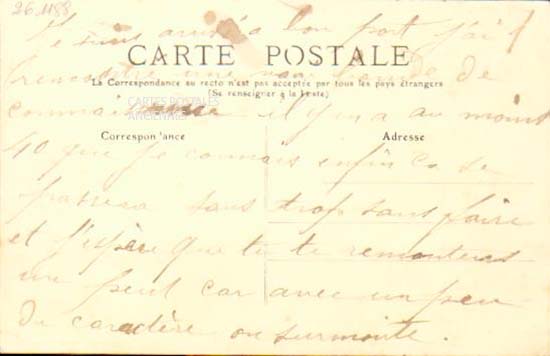 26.1188
Je suis arrivé a bon port j'ai
CARTE POSTALE
rencontré une bande de
La Correspondance au recto n'est pas acceptée par tous les pays étrangers
(Se renseigner à la Poste)
CARTES POSTALES
ANCIENNES
connaissance il y en a au moins
Correspondance
Adresse
40 que je connais enfin ça se
passera sans trop sans faire
et j'espère que tu te remonteras
un peut car avec un peu
du caractère on surmonte.